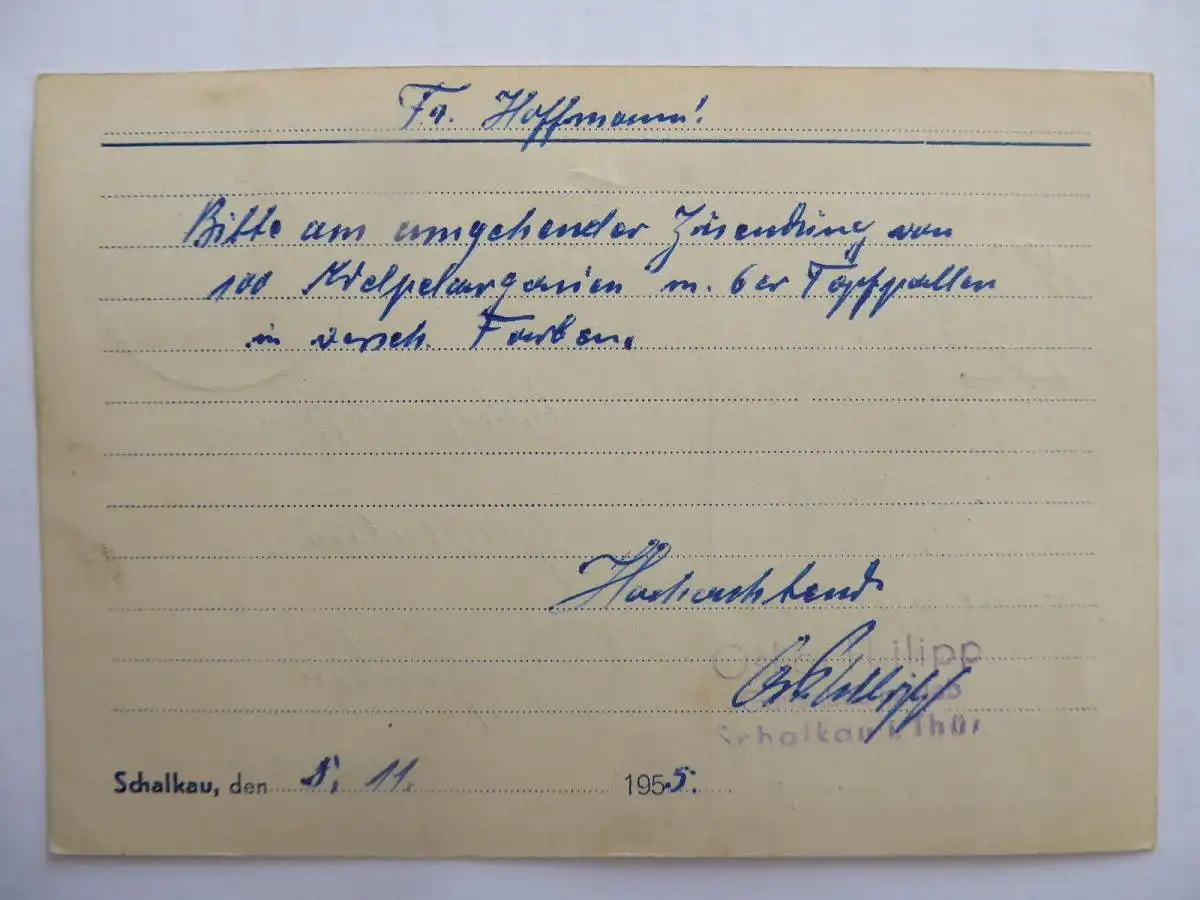 Fr. Hoffmann!
Bitte um umgehender Zusendung von
100 Edelpelargonien m. 6er Topfpallen
in versch. Farben.
Hochachtend
Philipp
Schalkau i. Thür.
Schalkau, den 8. 11. 1955.